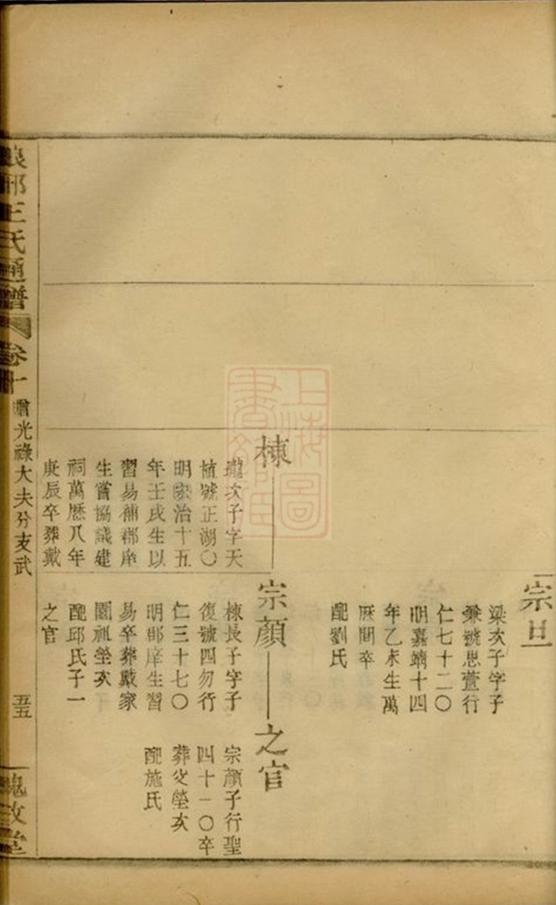 宗旦
梁次子字子
兼號思萱行
仁七十二〇
明嘉靖十四
年乙未生萬
厯間卒
配劉氏
棟
瓏次子字天
植號正湖〇
明宏治十五
年壬戌生以
習易補郡庠
生嘗協議建
祠萬厯八年
庚辰卒葬戴
宗顏
棟長子字子
復號四勿行
仁三十七〇
明郡庠生習
易卒葬戴家
園祖塋亥
配邱氏子一
之官
之官
宗顏子行聖
四十一〇卒
葬父塋亥
配施氏
琅邪王氏通譜
卷十
贈光祿大夫分支武
五五
槐政堂
上海圖書館藏